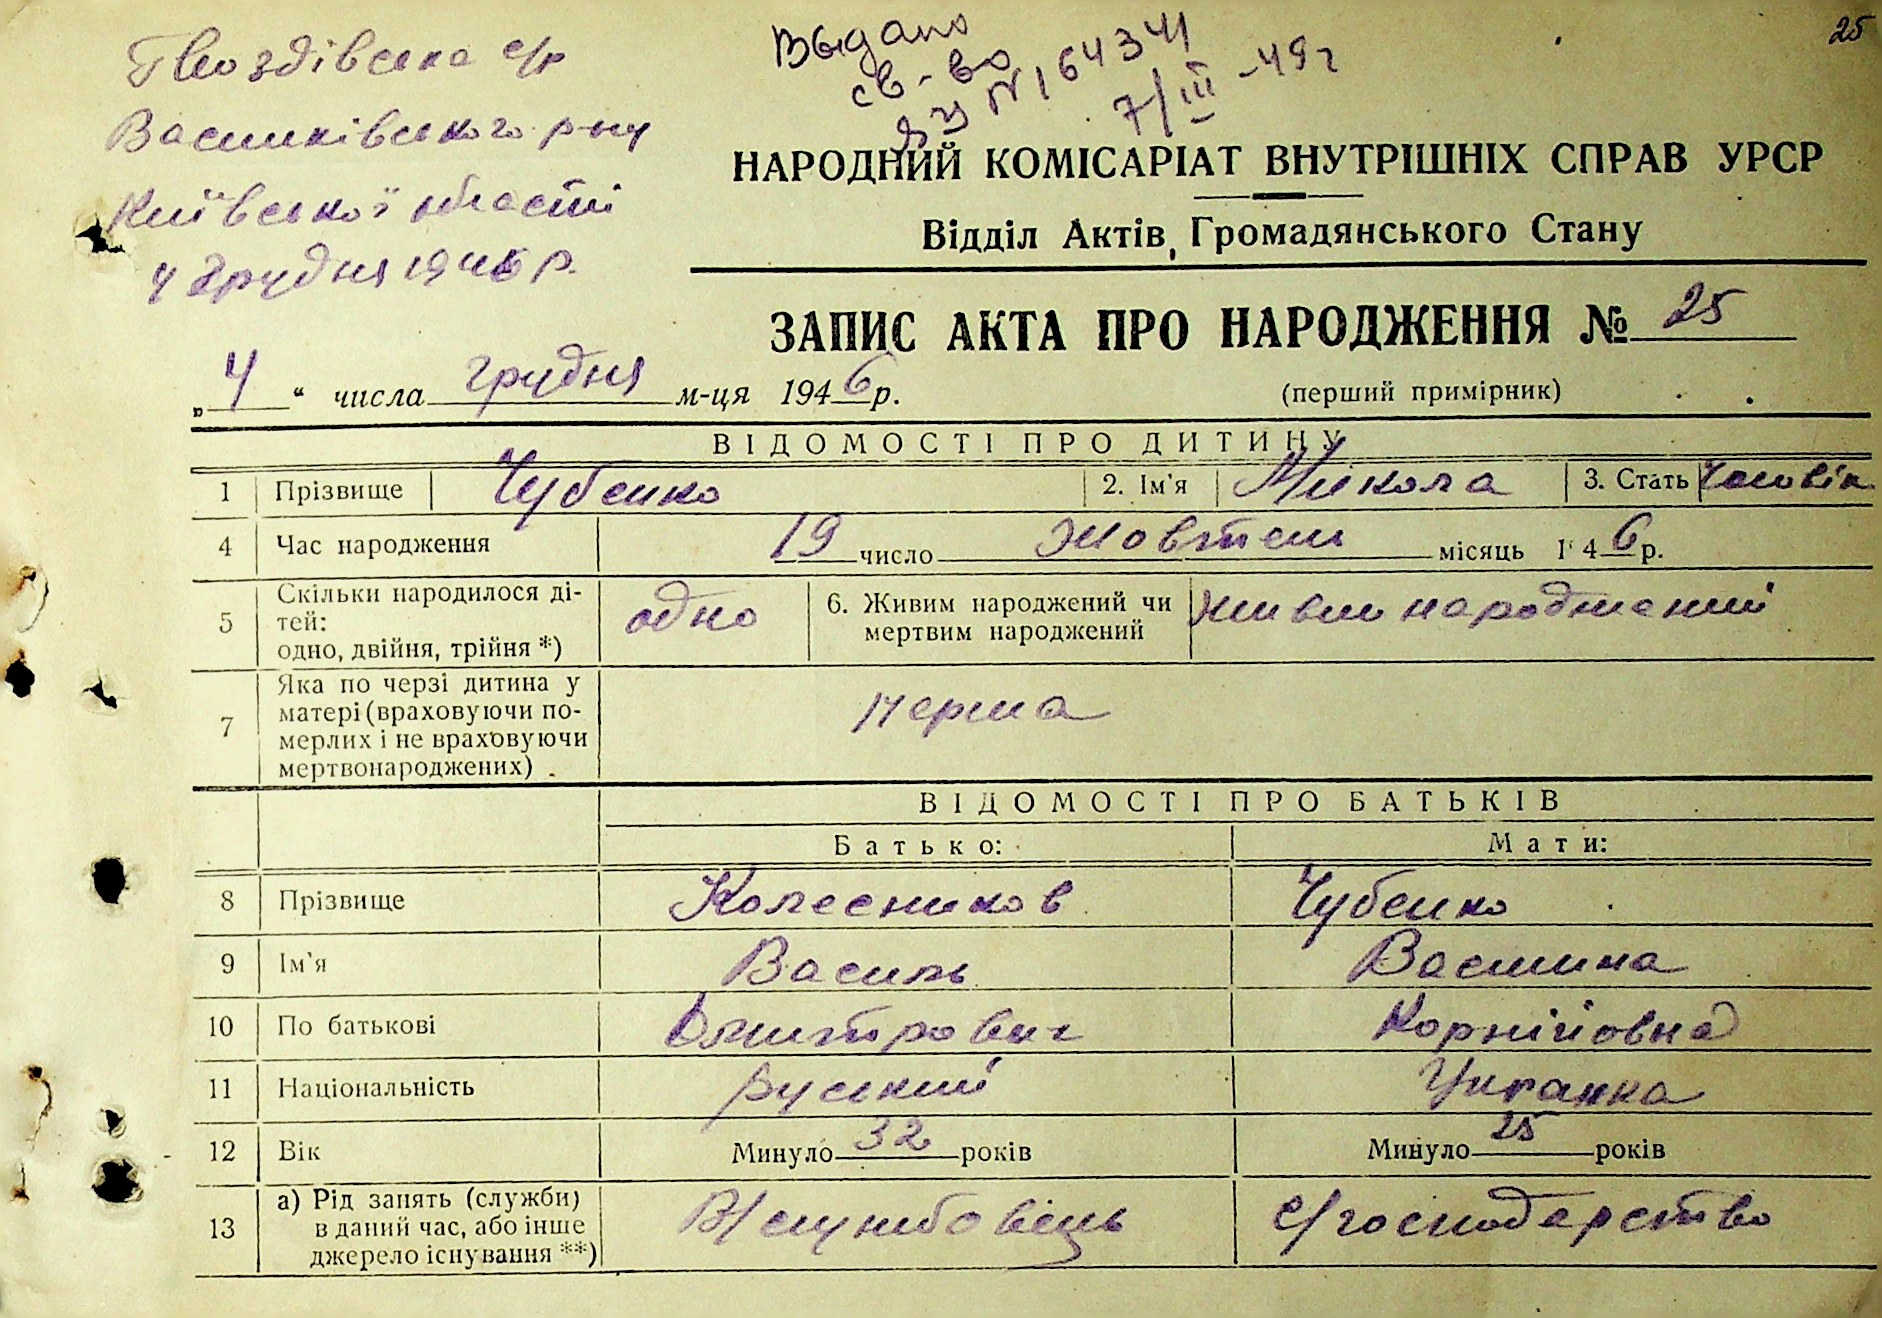 25
Выдано
св-во
ЯУ № 164341
7/III -49 г
Гвоздівська с/р
Васильківського р-ну
Київської області
4 грудня 1946 р.
НАРОДНИЙ КОМІСАРІАТ ВНУТРІШНІХ СПРАВ УРСР
Відділ Актів Громадянського Стану
ЗАПИС АКТА ПРО НАРОДЖЕННЯ № 25
„4“ числа грудня м-ця 1946 р.
(перший примірник)
ВІДОМОСТІ ПРО ДИТИНУ
1 Прізвище Чубенко 2. Ім'я Микола 3. Стать Чоловік
4 Час народження 19 число Жовтень місяць 1946 р.
5 Скільки народилося ді-
тей:
одно, двійня, трійня *) одно 6. Живим народжений чи
мертвим народжений живим народжений
7 Яка по черзі дитина у
матері (враховуючи по-
мерлих і не враховуючи
мертвонароджених) перша
ВІДОМОСТІ ПРО БАТЬКІВ
Батько: Мати:
8 Прізвище Колесников Чубенко
9 Ім'я Василь Василина
10 По батькові Дмитрович Корнійовна
11 Національність руський Українка
12 Вік Минуло 32 років Минуло 25 років
13 а) Рід занять (служби)
в даний час, або інше
джерело існування **) В/службовець с/господарство